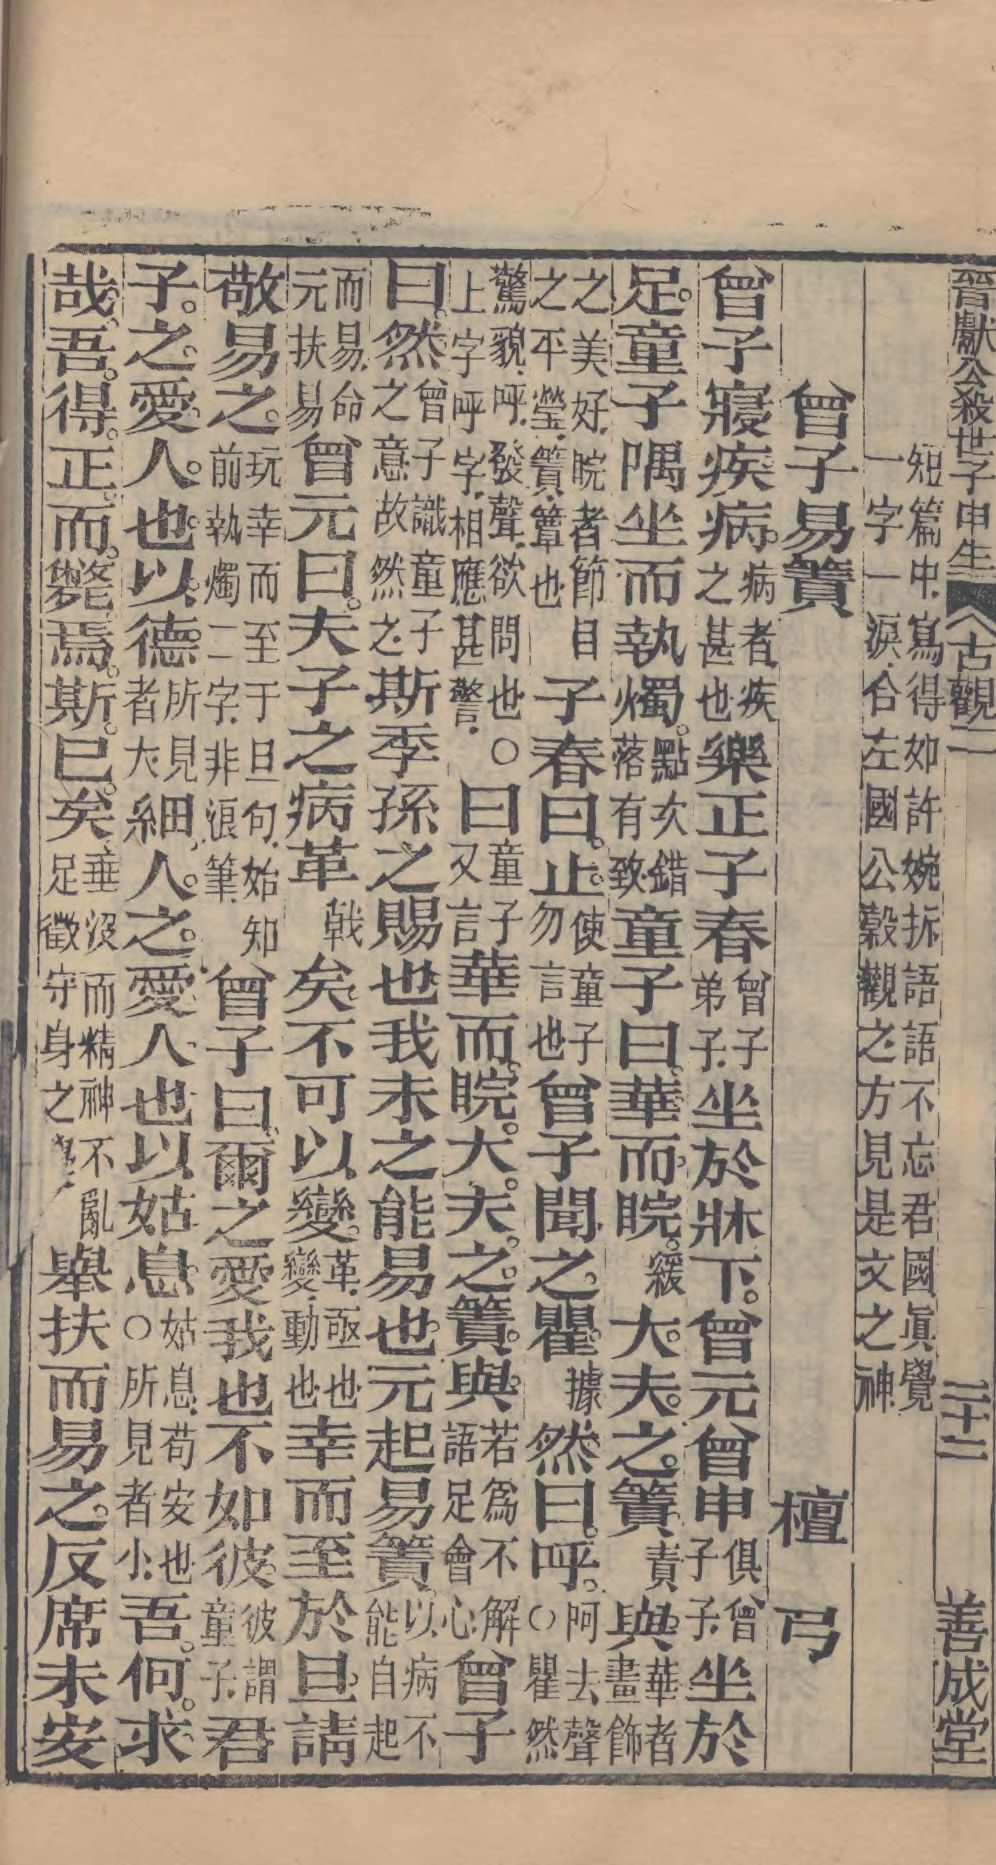 晉獻公殺世子申生 古觀二 三十二 善成堂
短篇中寫得如許婉折語語不忘君國眞覺
一字一淚合左國公穀觀之方見是文之神
曾子易簀 檀弓
曾子寢疾病。病者疾之甚也樂正子春曾子弟子坐於牀下。曾元曾申俱曾子子坐於
足。童子隅坐而執燭。點次錯落有致童子曰華而睆。緩大夫之簀。責與華者畫飾
之美好睆者節目之平瑩簀簟也子春曰。止。使童子勿言也曾子聞之瞿據然曰。呼。阿去聲○瞿然
驚貌呼發聲欲問也○上字呼字相應甚警曰童子又言華而睆。大夫之簀。與若爲不解語足會心曾子
曰。然曾子識童子之意故然之斯季孫之賜也我未之能易也元起易簀以病不能自起
而易命元扶易曾元曰。夫子之病革戟矣不可以變。革亟也變動也幸而至於旦請
敬易之。玩幸而至于旦句始知前執燭二字非浪筆曾子曰爾之愛我也不如彼彼謂童子君
子。之愛人也以德所見者大細人之愛人也以姑息姑息苟安也○所見者小吾何求
哉吾得正而斃焉斯已矣垂沒而精神不亂足徵守身之舉扶而易之。反席未安